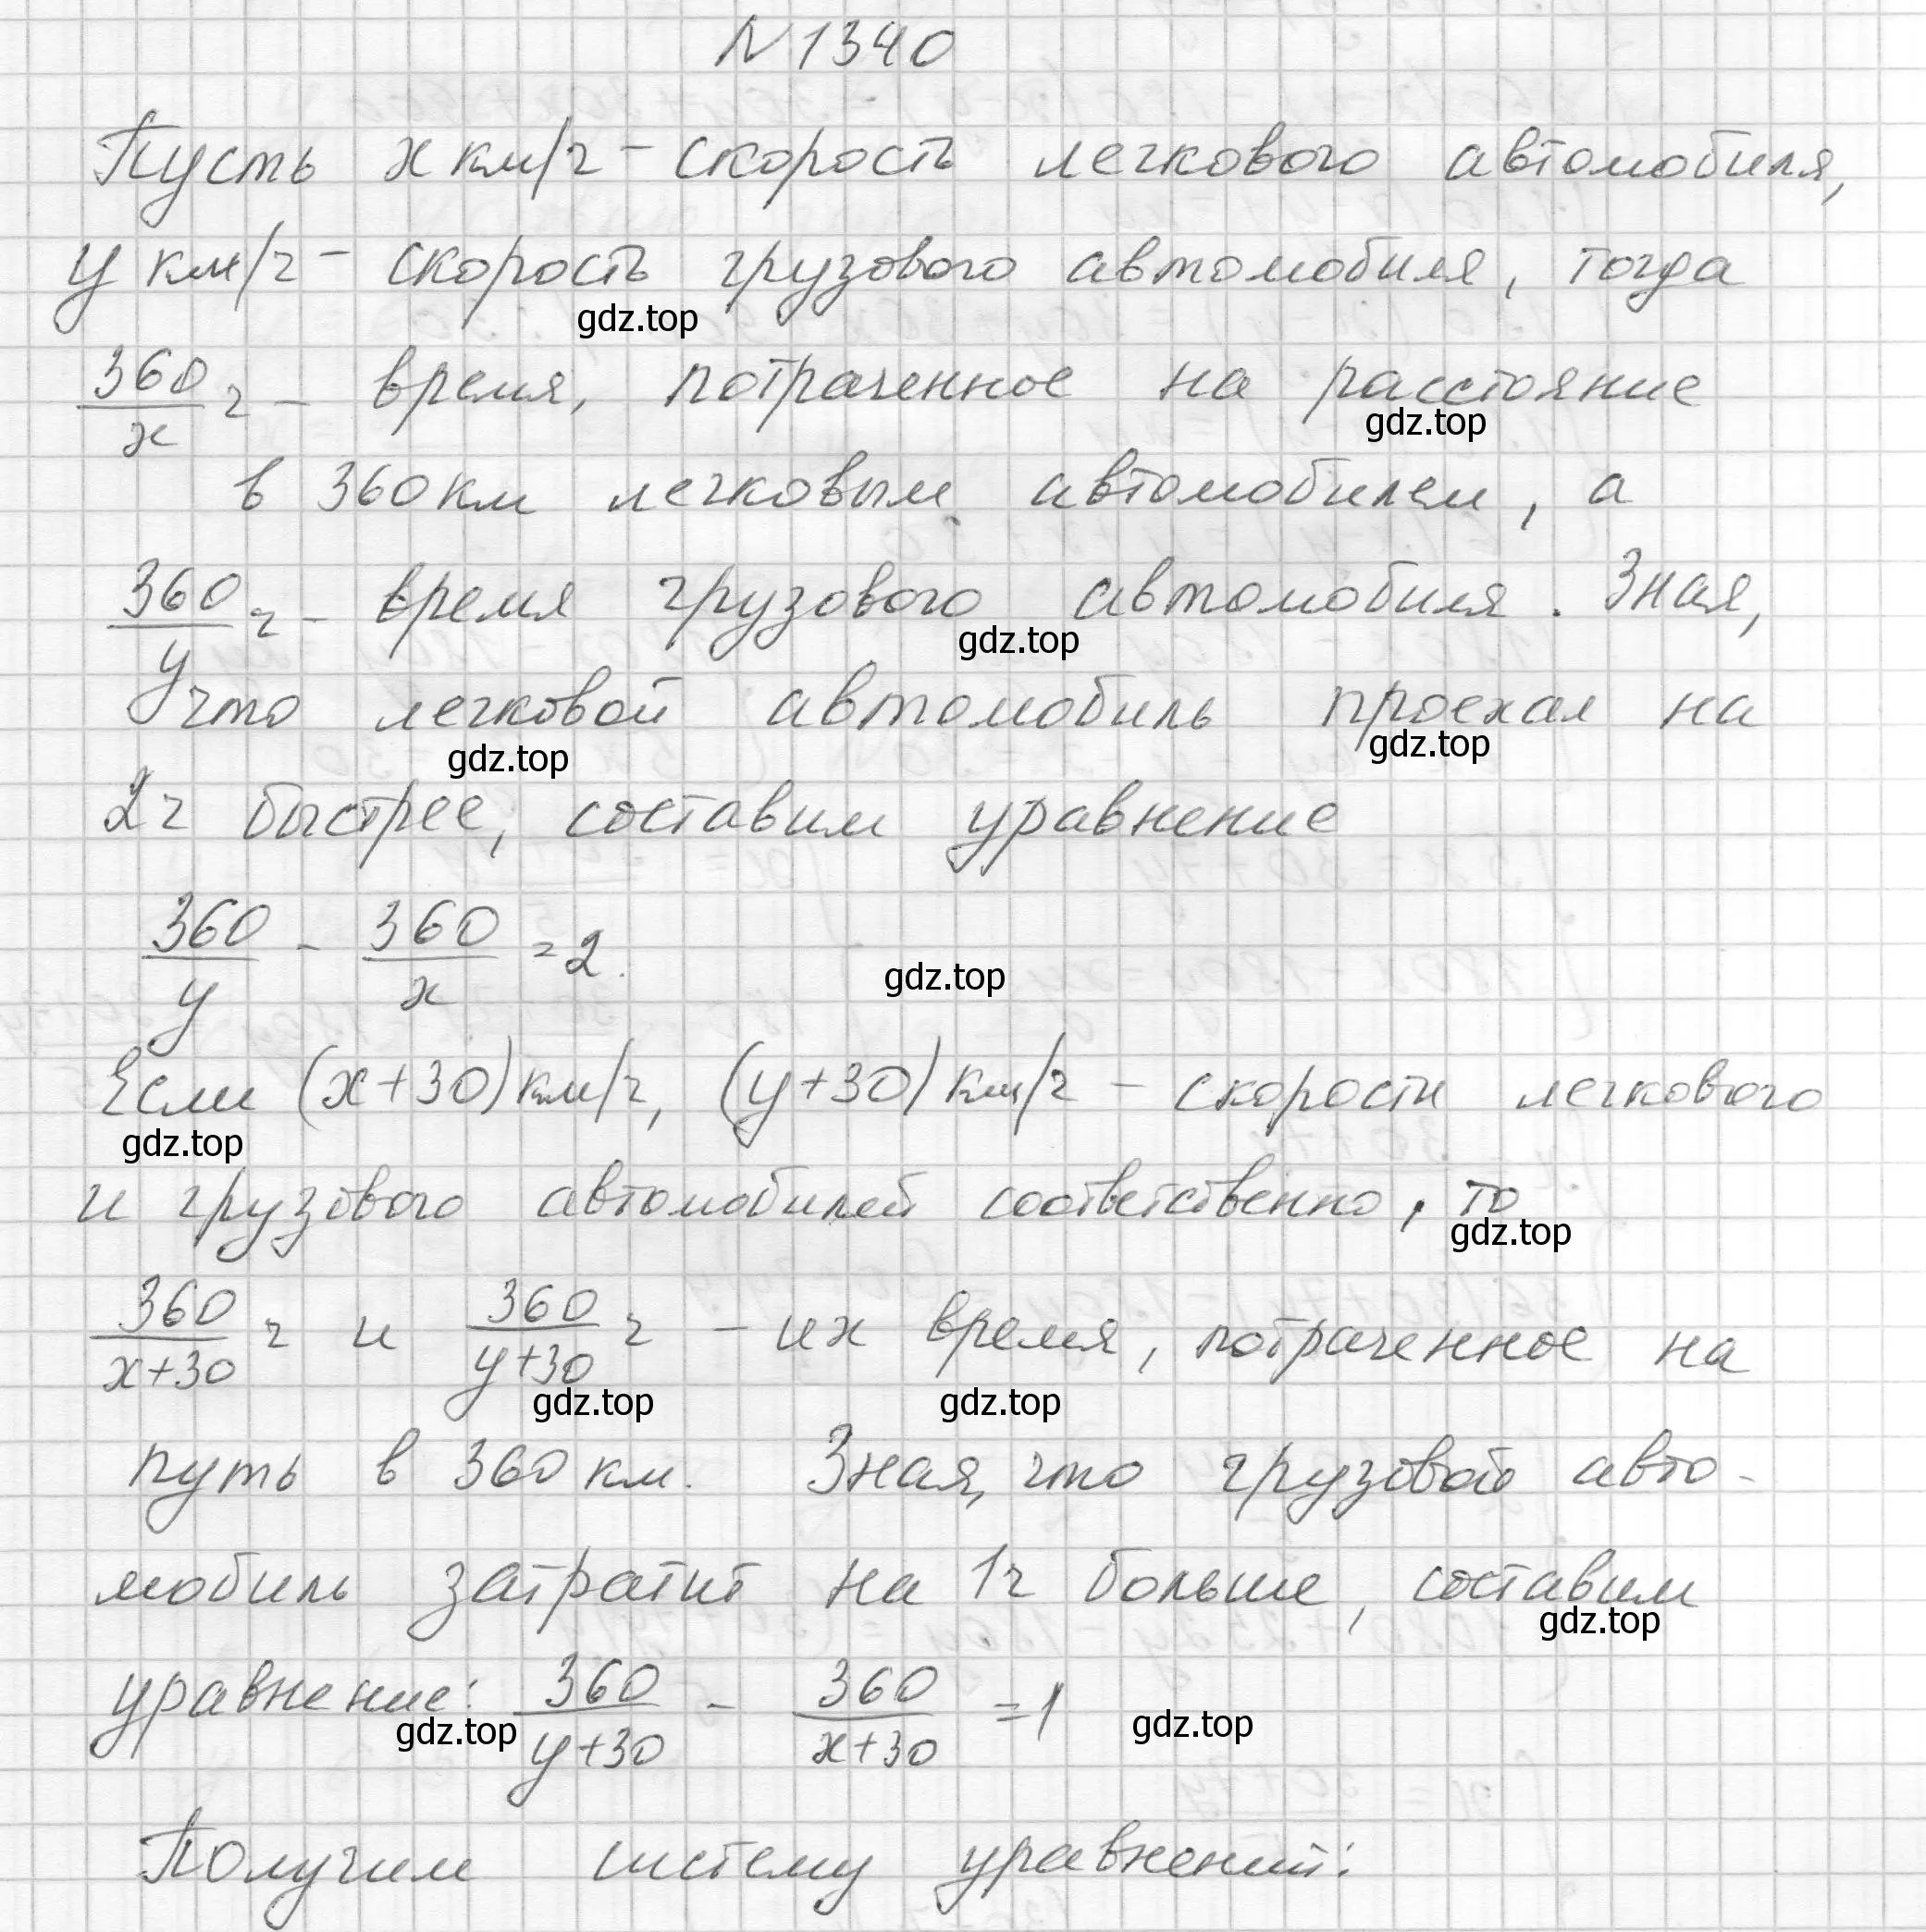 N 1340
Пусть x км/ч - скорость легкового автомобиля,
y км/ч - скорость грузового автомобиля, тогда
gdz.top
360/x ч - время, потраченное на расстояние
gdz.top
в 360 км легковым автомобилем, а
360/y ч - время грузового автомобиля. Зная,
gdz.top
что легковой автомобиль проехал на
gdz.top gdz.top
2ч быстрее, составим уравнение
360/y - 360/x = 2.
gdz.top
Если (x+30) км/ч, (y+30) км/ч - скорости легкового
gdz.top
и грузового автомобилей соответственно, то
gdz.top
360/(x+30) ч и 360/(y+30) ч - их время, потраченное на
gdz.top gdz.top
путь в 360 км. Зная, что грузовой авто-
мобиль затратит на 1ч больше, составим
gdz.top
уравнение: 360/(y+30) - 360/(x+30) = 1
gdz.top gdz.top
Получим систему уравнений: